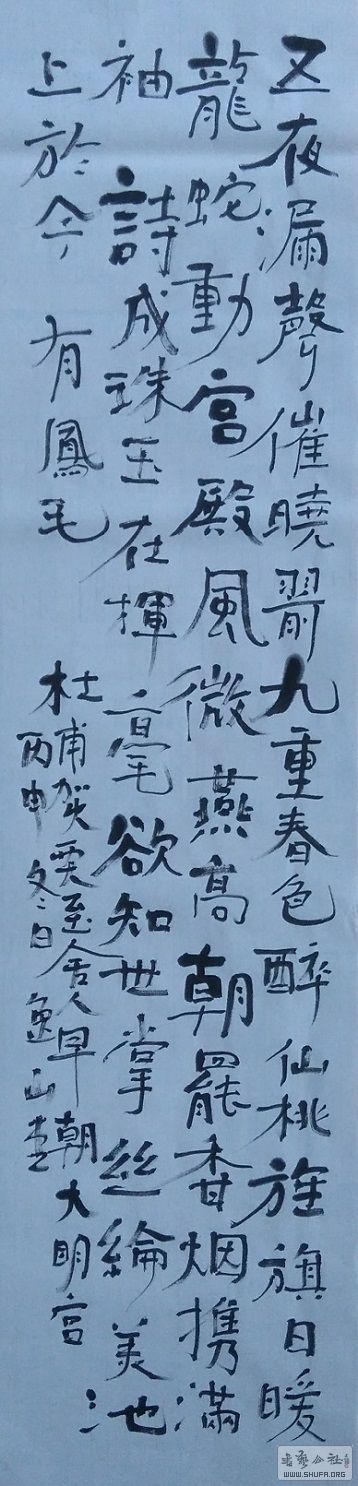 五夜漏聲催曉箭九重春色醉仙桃旌旗日暖
龍蛇動宮殿風微燕高朝罷香烟携滿
袖詩成珠玉在揮毫欲知世掌絲綸美池
上於今有鳳毛
杜甫贺贾至舍人早朝大明宮
丙申冬日山
WWW.SHUFA.ORG